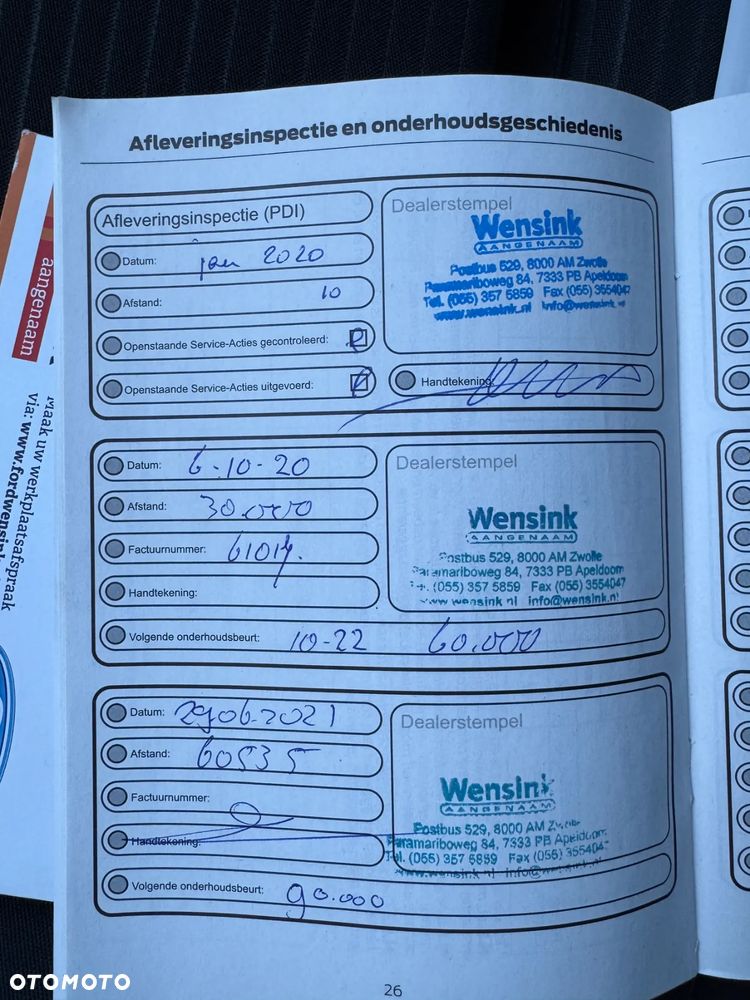 Afleveringsinspectie en onderhoudsgeschiedenis
Afleveringsinspectie (PDI)
Datum: jan 2020
Afstand: 10
Openstaande Service-Acties gecontroleerd:
Openstaande Service-Acties uitgevoerd:
Dealerstempel
Wensink
AANGENAAM
Postbus 529, 8000 AM Zwolle
Paramariboweg 84, 7333 PB Apeldoorn
Tel. (055) 357 5859 Fax (055) 3554047
www.wensink.nl info@wensink.nl
Handtekening:
Datum: 6-10-20
Afstand: 30.000
Factuurnummer:
Handtekening:
Volgende onderhoudsbeurt: 10-22 60.000
Dealerstempel
Wensink
AANGENAAM
Postbus 529, 8000 AM Zwolle
Paramariboweg 84, 7333 PB Apeldoorn
(055) 357 5859 Fax (055) 3554047
www.wensink.nl info@wensink.nl
Datum: 29062021
Afstand: 60535
Factuurnummer:
Handtekening:
Volgende onderhoudsbeurt: 90.000
Dealerstempel
Wensink
AANGENAAM
Postbus 529, 8000 AM
Paramariboweg 84, 7333 PB Apeldoorn
Tel. (055) 357 5859 Fax (055) 355404
www.wensink.nl
26
aangenaam
Maak uw werkplaatsafspraak
via: www.fordwensink
OTOMOTO